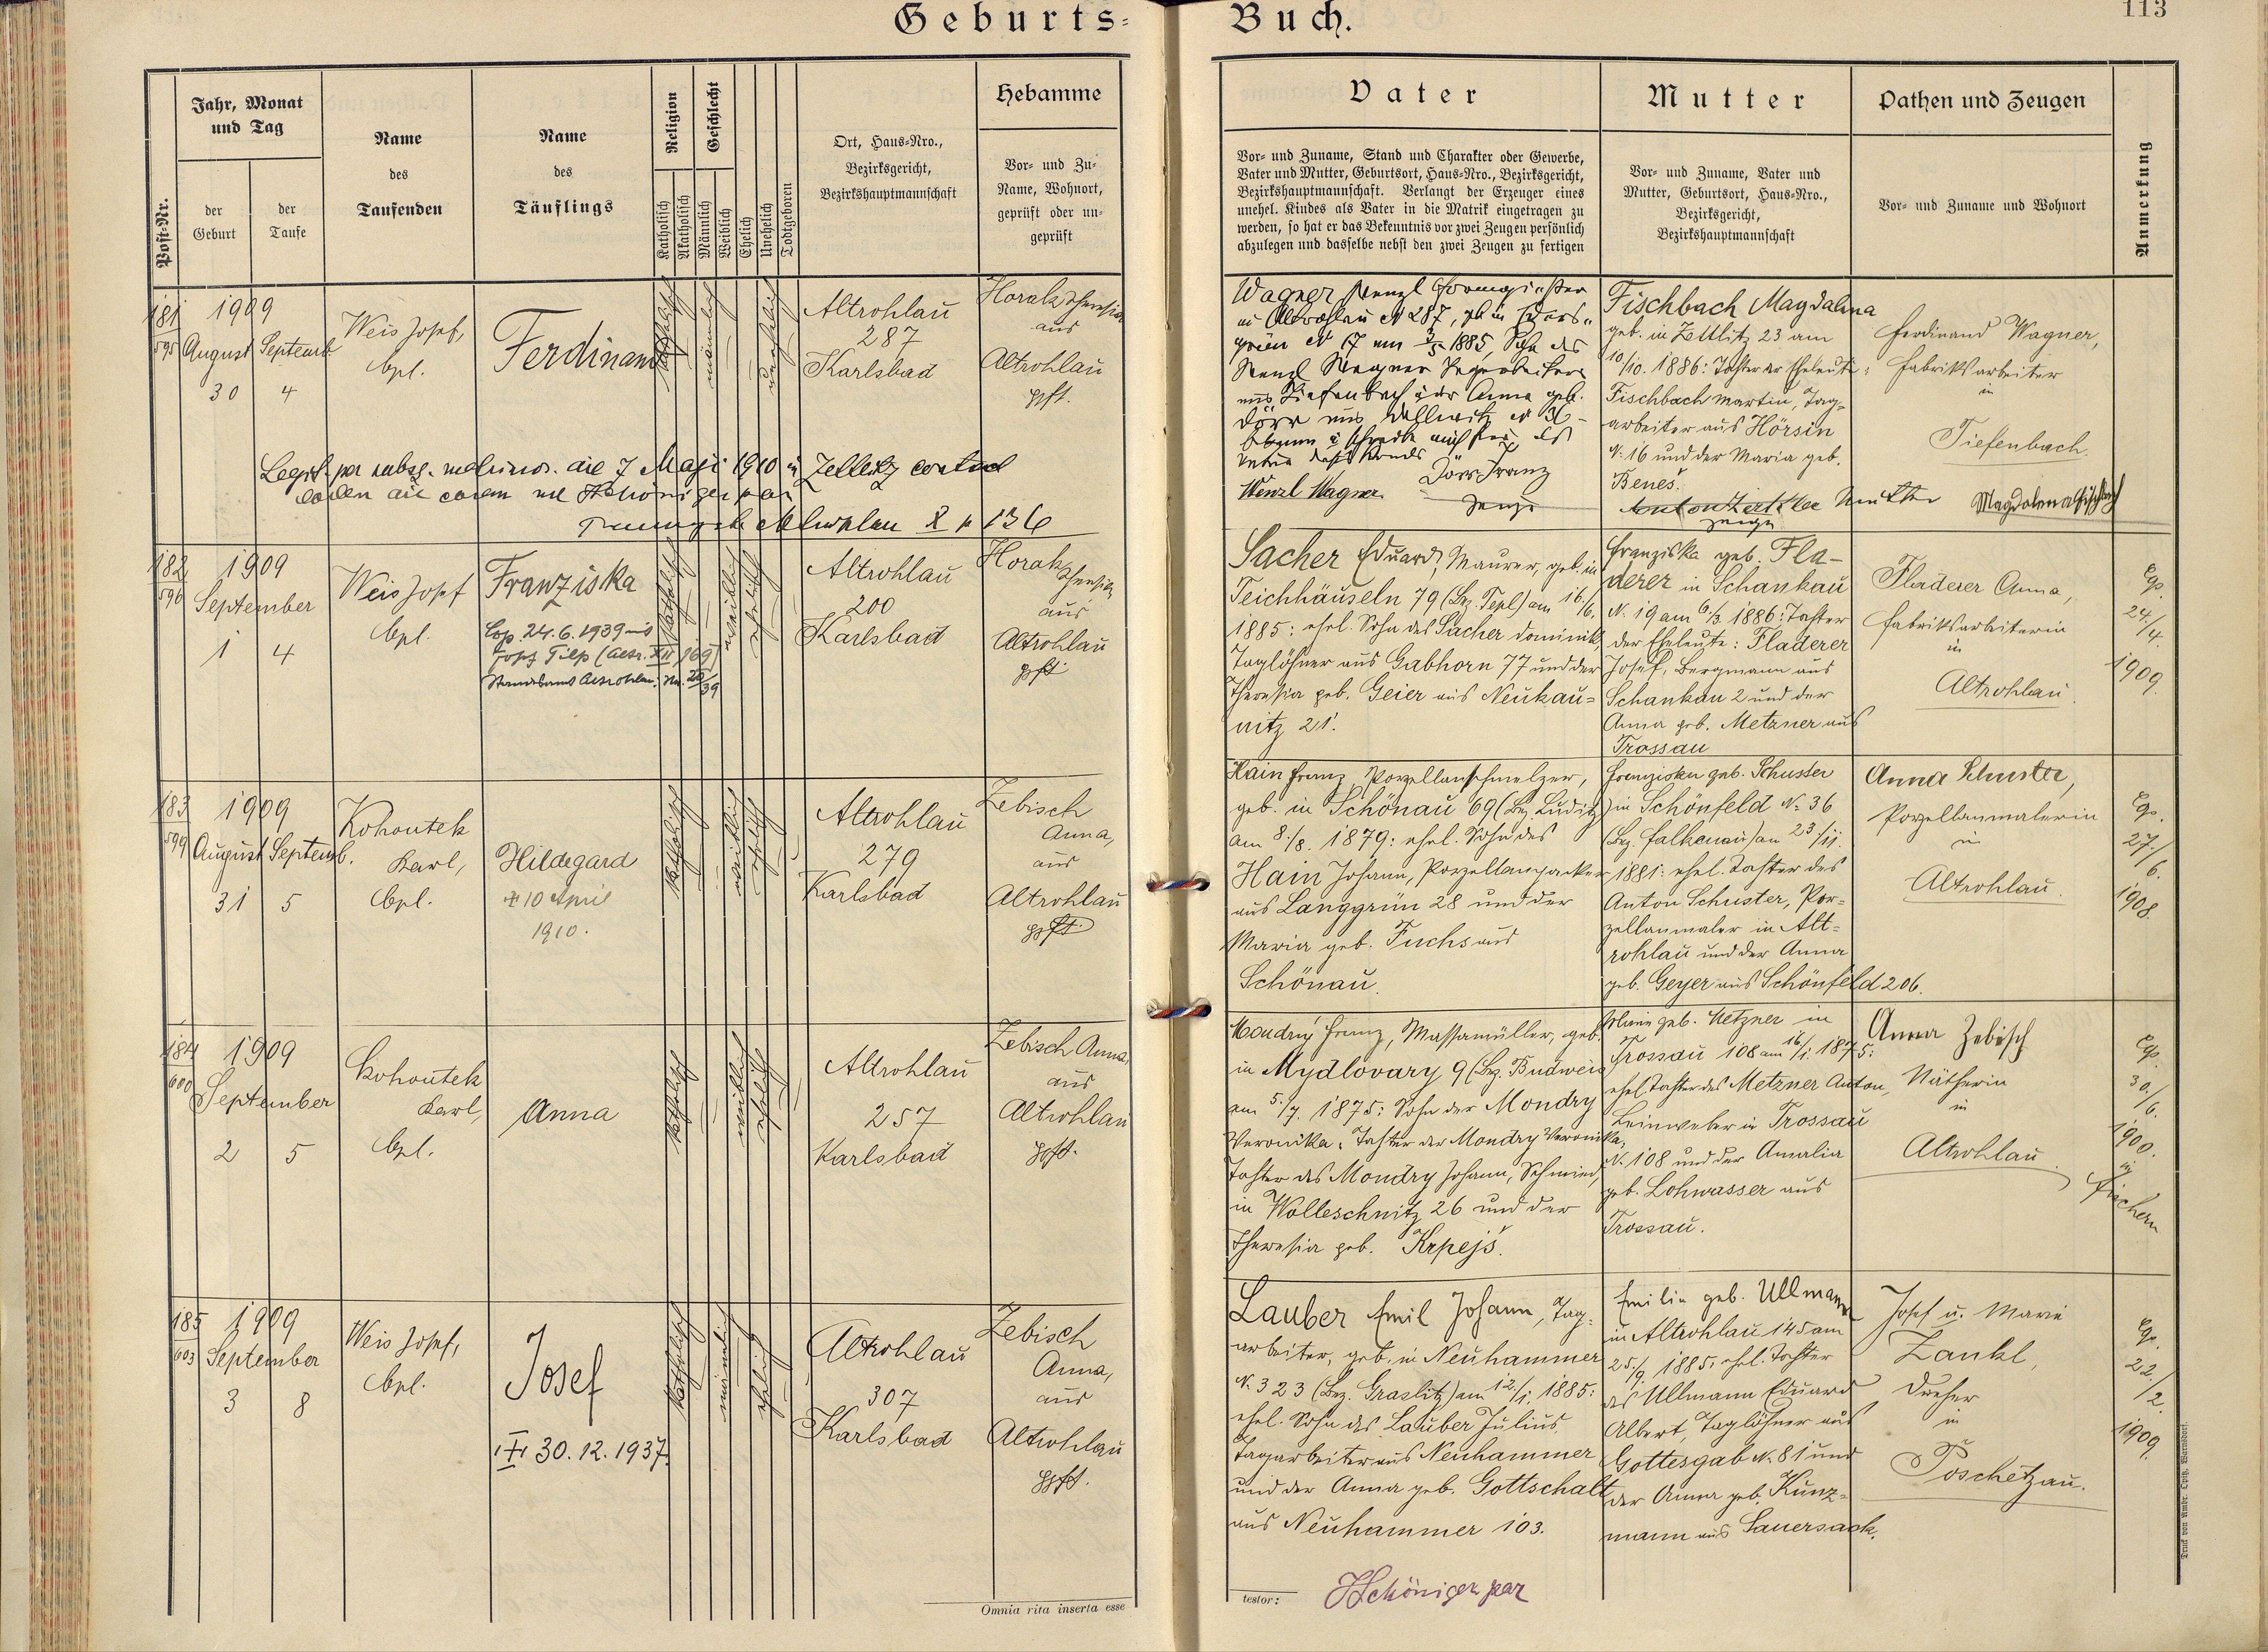 Geburts-
Buch.
113
Post-Nr.
Jahr, Monat
und Tag
der
Geburt
der
Taufe
Name
des
Taufenden
Name
des
Täuflings
Religion
Katholisch
Akatholisch
Geschlecht
Männlich
Weiblich
Ehelich
Unehelich
Todtgeboren
Ort, Haus-Nro.,
Bezirksgericht,
Bezirkshauptmannschaft
Hebamme
Vor- und Zu-
Name, Wohnort,
geprüft oder un-
geprüft
Vater
Vor- und Zuname, Stand und Charakter oder Gewerbe,
Vater und Mutter, Geburtsort, Haus-Nro., Bezirksgericht,
Bezirkshauptmannschaft. Verlangt der Erzeuger eines
unehel. Kindes als Vater in die Matrik eingetragen zu
werden, so hat er das Bekenntnis vor zwei Zeugen persönlich
abzulegen und dasselbe nebst den zwei Zeugen zu fertigen
Mutter
Vor- und Zuname, Vater und
Mutter, Geburtsort, Haus-Nro.,
Bezirksgericht,
Bezirkshauptmannschaft
Pathen und Zeugen
Vor- und Zuname und Wohnort
Anmerkung
181
595
1909
August Septemb.
30 4
Weis Josef,
Cpl.
Ferdinand
katholisch
männlich
unehelich
Altrohlau
287
Karlsbad
Horak
aus
Altrohlau
gpft.
Wagner Wenzl Formgießer
in Altrohlau N 287, geb. in
grün N 17 am 1885, Sohn des
Wenzl Wagner
aus Tiefenbach u. der Anna geb.
Dörr aus N 36
Dörr Franz
Wenzl Wagner Zeuge
Fischbach Magdalena
geb. in Zettlitz 23 am
10/10. 1886: Tochter der Eheleute:
Fischbach Martin, Tag-
arbeiter aus Hörsin
N. 16 und der Maria geb.
Beneš.
Mutter Magdalena Fischbach
Zeuge
Ferdinand Wagner,
Fabriksarbeiter
in
Tiefenbach.
Legit. per subsq. matrimon. die 7 Maji 1910 in Zettlitz
Schöniger par
Altrohlau X p 136
182
596
1909
September
1 4
Weis Josef
Cpl.
Franziska
Cop. 24.6.1939 mit
Josef Tilp (Altr. XII/169)
Standesamt Altrohlau: Nr. 20/39
katholisch
weiblich
ehelich
Altrohlau
200
Karlsbad
Horak
aus
Altrohlau
gpft.
Sacher Eduard, Maurer, geb. in
Teichhäuseln 79 (Bz. Tepl) am 16/6.
1885: ehel. Sohn des Sacher Dominik,
Taglöhner aus Gabhorn 77 und der
Theresia geb. Geier aus Neukau-
nitz 21.
Franziska geb. Fla-
derer in Schankau
N. 19 am 6/3. 1886: Tochter
der Eheleute: Fladerer
Josef, Bergmann aus
Schankau 2 und der
Anna geb. Metzner aus
Trossau
Fladerer Anna,
Fabriksarbeiterin
in
Altrohlau.
Cop.
24./4.
1909.
183
599
1909
August Septemb.
31 5
Kohoutek
Karl,
Cpl.
Hildegard
✝ 10 April
1910.
katholisch
weiblich
ehelich
Altrohlau
279
Karlsbad
Zebisch
Anna,
aus
Altrohlau
gpft.
Hain Franz, Porzellanschmelzer,
geb. in Schönau 69 (Bz. Luditz)
am 8./8. 1879: ehel. Sohn des
Hain Johann, Porzellanpacker
aus Langgrün 28 und der
Maria geb. Fuchs aus
Schönau.
Franziska geb. Schuster
in Schönfeld N. 36
(Bz. Falkenau) am 23/11.
1881: ehel. Tochter des
Anton Schuster, Por-
zellanmaler in Alt-
rohlau und der Anna
geb. Geyer aus Schönfeld 206.
Anna Schuster,
Porzellanmalerin
in
Altrohlau.
Cop.
27./6.
1908.
184
600
1909
September
2 5
Kohoutek
Karl,
Cpl.
Anna
katholisch
weiblich
ehelich
Altrohlau
257
Karlsbad
Zebisch Anna,
aus
Altrohlau
gpft.
Mondry Franz, Massamüller, geb.
in Mydlovary 9 (Bz. Budweis)
am 5./7. 1875: Sohn der Mondry
Veronika, Tochter der Mondry Veronika,
Tochter des Mondry Johann, Schmied,
in Wolleschnitz 26 und der
Theresia geb. Krpejš.
Maria geb. Metzner in
Trossau 108 am 16/1. 1875:
ehel. Tochter des Metzner Anton,
Leinweber in Trossau
N. 108 und der Amalia
geb. Lohwasser aus
Trossau.
Anna Zebisch
Nätherin
in
Altrohlau.
Cop.
30./6.
1900.
in
Fischern
185
603
1909
September
3 8
Weis Josef,
Cpl.
Josef
✝ 30.12.1937.
katholisch
männlich
ehelich
Altrohlau
307
Karlsbad
Zebisch
Anna,
aus
Altrohlau
gpft.
Lauber Emil Johann, Tag-
arbeiter, geb. in Neuhammer
N. 323 (Bz. Graslitz) am 12./1. 1885:
ehel. Sohn des Lauber Julius,
Tagarbeiter aus Neuhammer
und der Anna geb. Gottschalk
aus Neuhammer 103.
Emilie geb. Ullmann
in Altrohlau 145 am
25./9. 1885: ehel. Tochter
des Ullmann Eduard
Albert, Taglöhner aus
Gottesgab N. 81 und
der Anna geb. Kunz-
mann aus Sauersack.
Josef u. Marie
Zankl,
Dreher
in
Poschetzau.
Cop.
22./2.
1909.
Omnia rita inserta esse
testor: JSchöniger par
Druck von Ambr. Opitz, Warnsdorf.